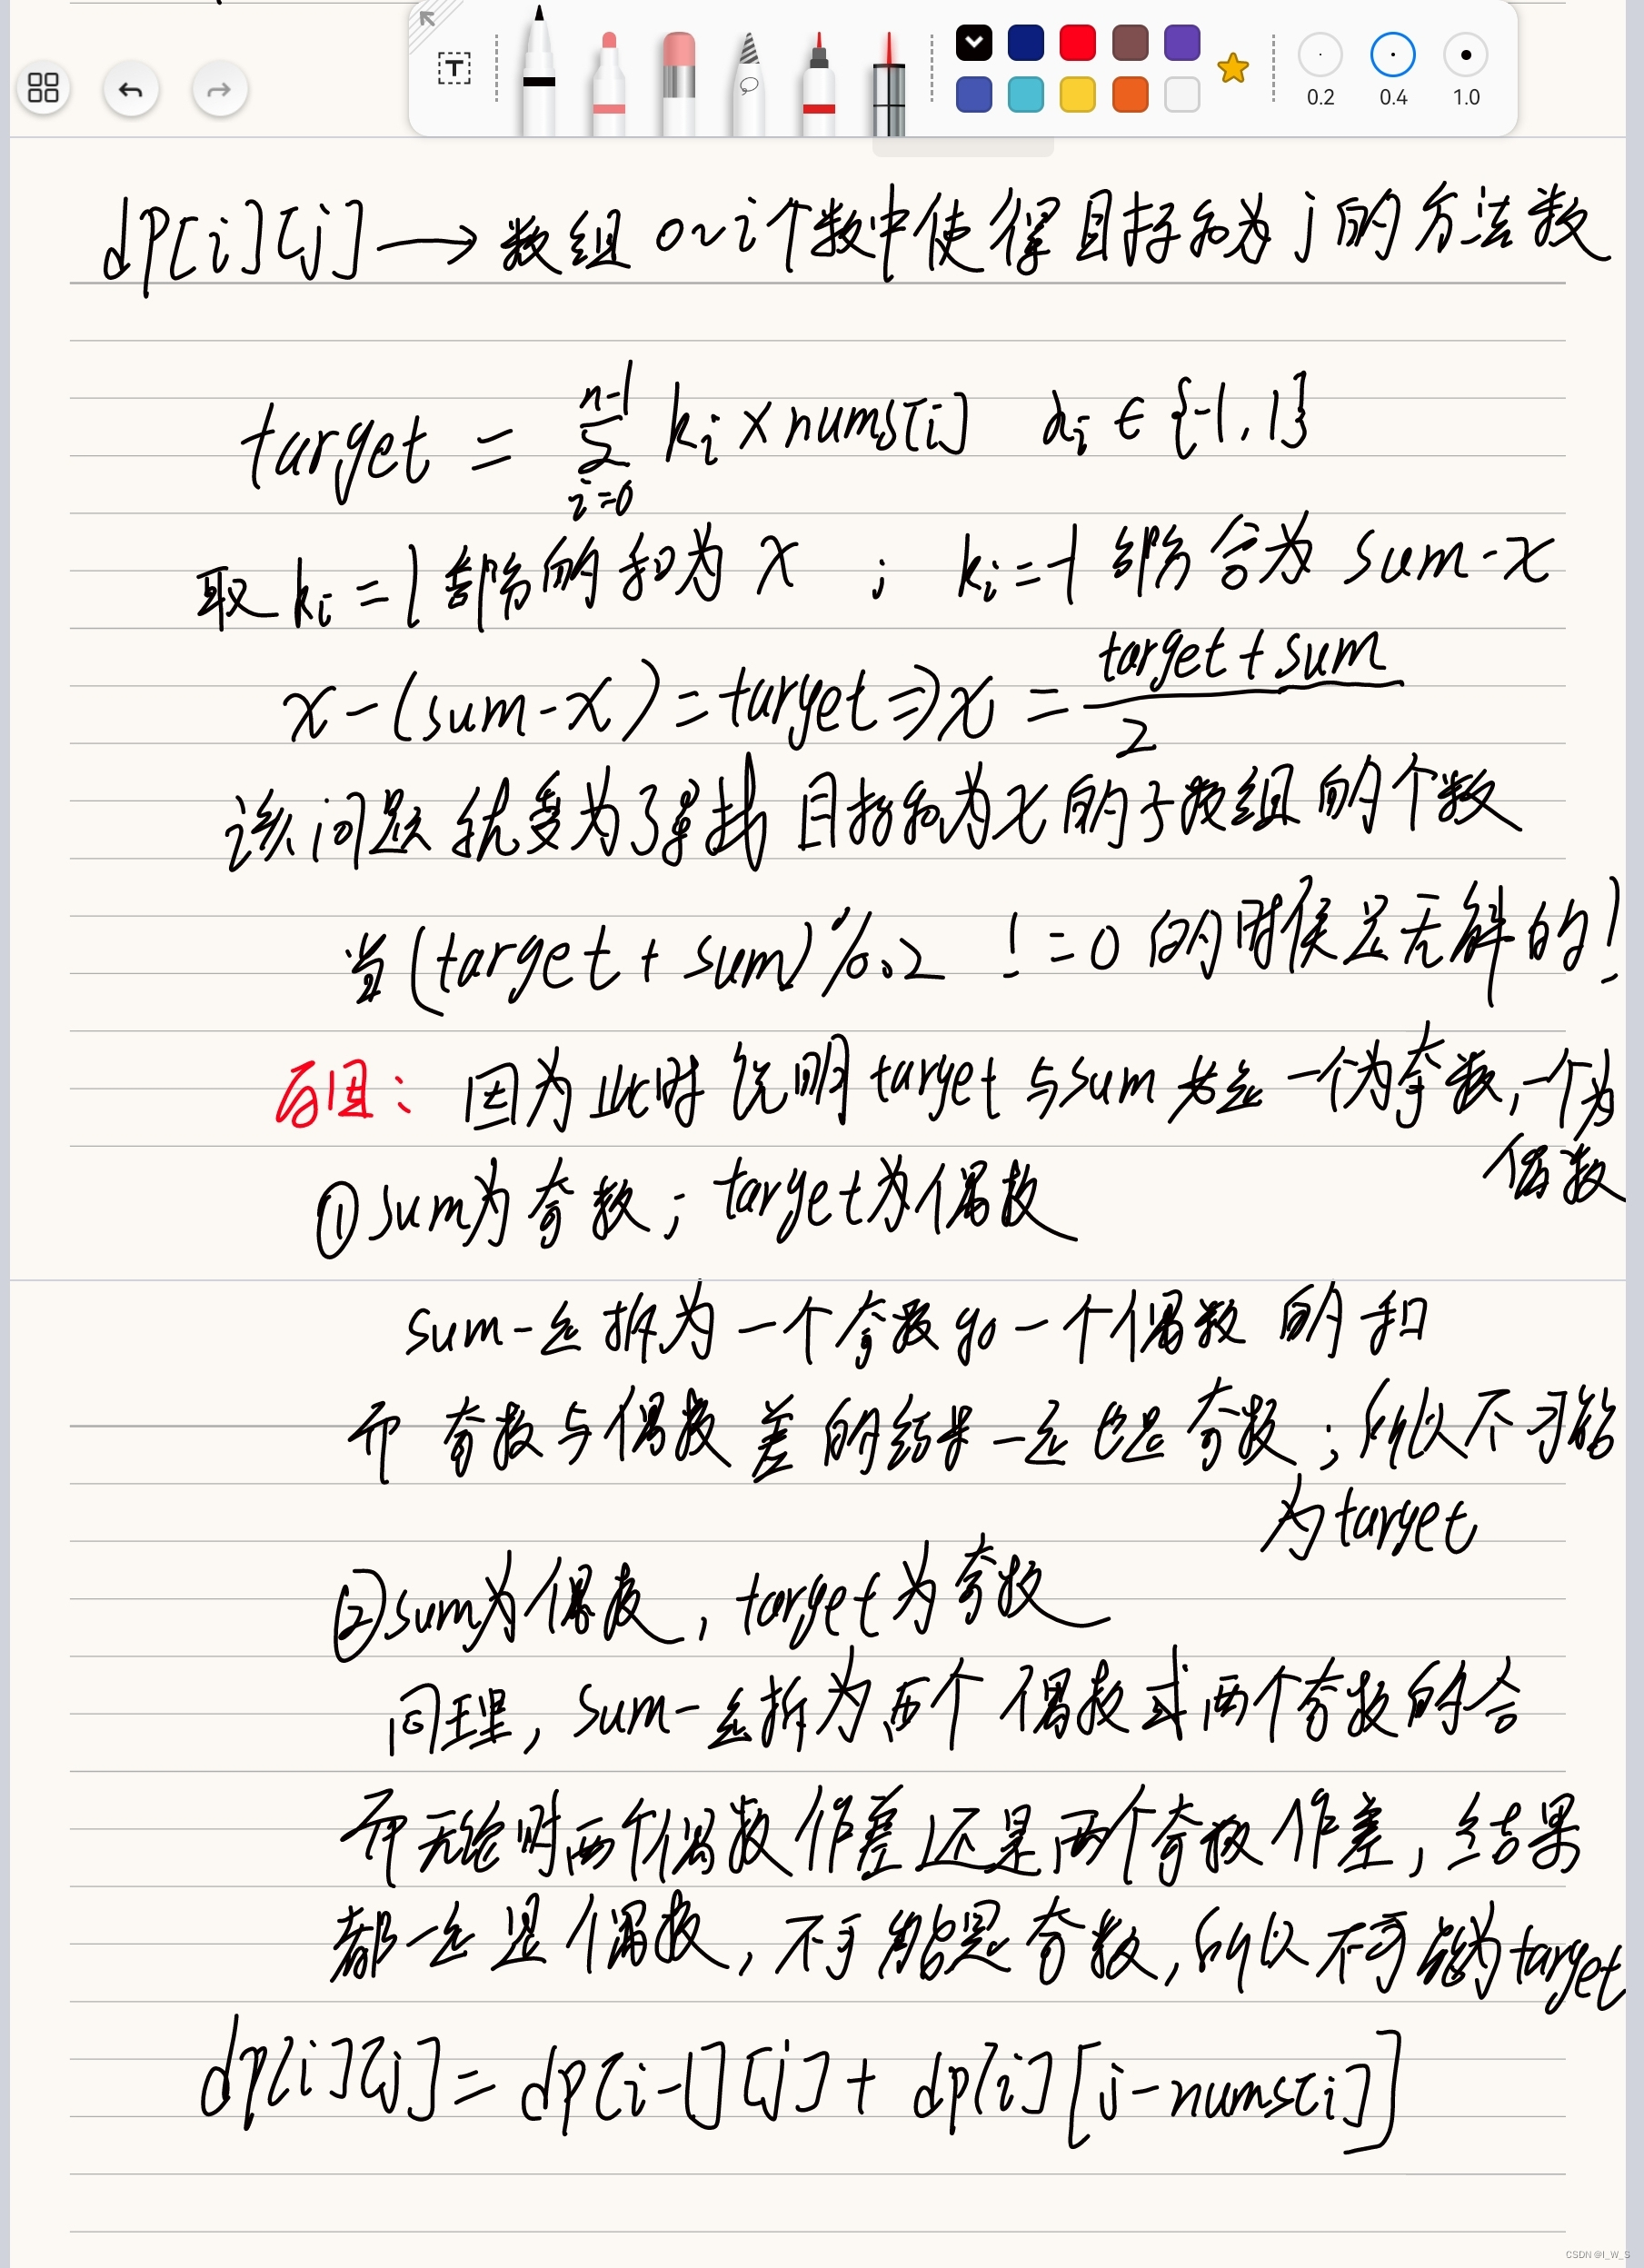 T
0.2 0.4 1.0
dp[i][j] → 数组 0~i个数中使得目标和为j的方法数
n-1
target = Σ ki×nums[i] di ∈ {-1,1}
i=0
取ki=1部分的和为x ; ki=-1部分合为sum-x
x-(sum-x)=target⇒x = (target+sum)/2
该问题就变为了寻找目标和为x的子数组的个数
当(target+sum)%2 !=0的时候是无解的!
原因: 因为此时说明target与sum共是一个为奇数,一个为
偶数
①sum为奇数; target为偶数
sum一定拆为一个奇数和一个偶数的和
而奇数与偶数差的结果一定也是奇数;所以不可能
为target
②sum为偶数,target为奇数
同理, sum一定拆为两个偶数或两个奇数的合
而无论时两个偶数作差还是两个奇数作差,结果
都一定是偶数,不可能是奇数,所以不可能为target
dp[i][j]=dp[i-1][j]+dp[i][j-nums[i]]
CSDN @I_W_S